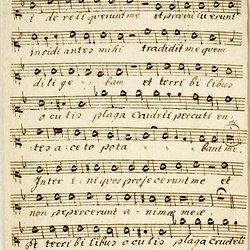 i de reli querunt me et prævaluerunt
insidiantes mihi tradidit me quem
di li ge bam et terri bi libus
oculis plaga crudeli percuti en
tes aceto pota bant me.
Inter iniquos projecerunt me et
non pepercerunt animæ meæ
et terri bi libus oculis plaga crudeli